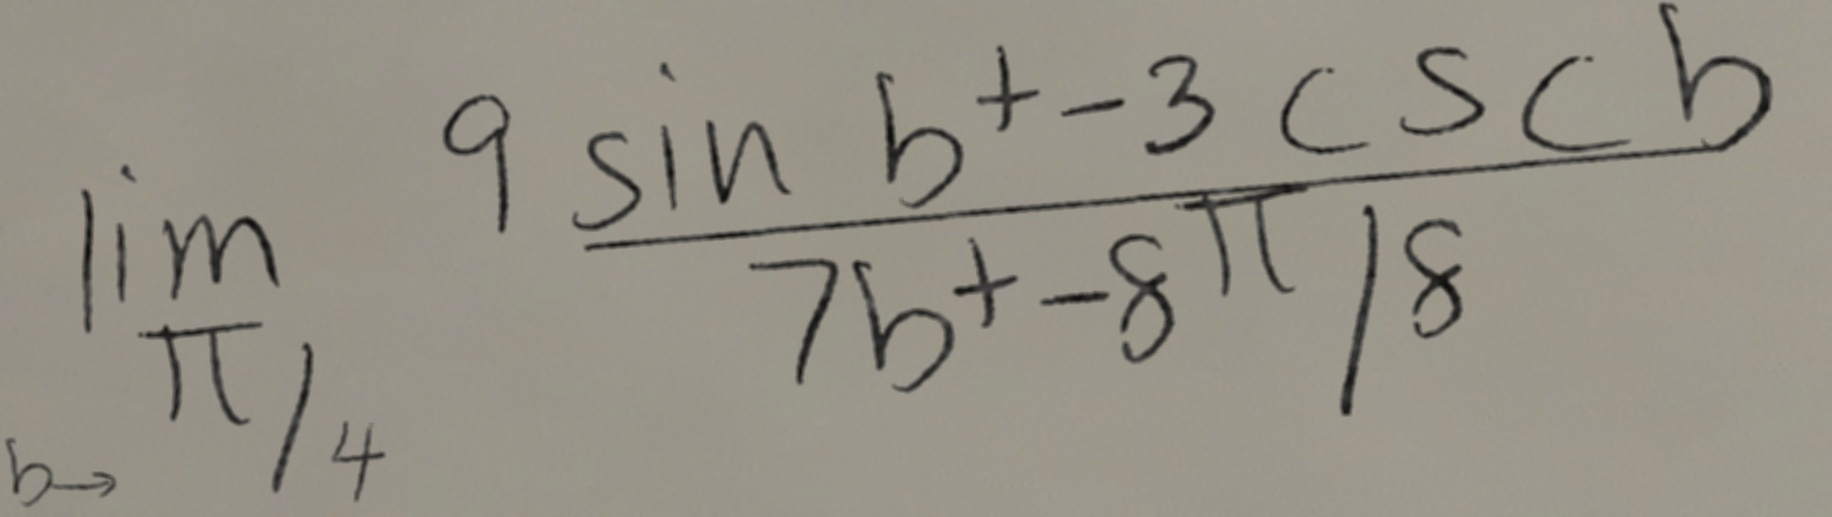 lim b→π/4 (9 sin b + -3 csc b) / (7b + -8π/8)